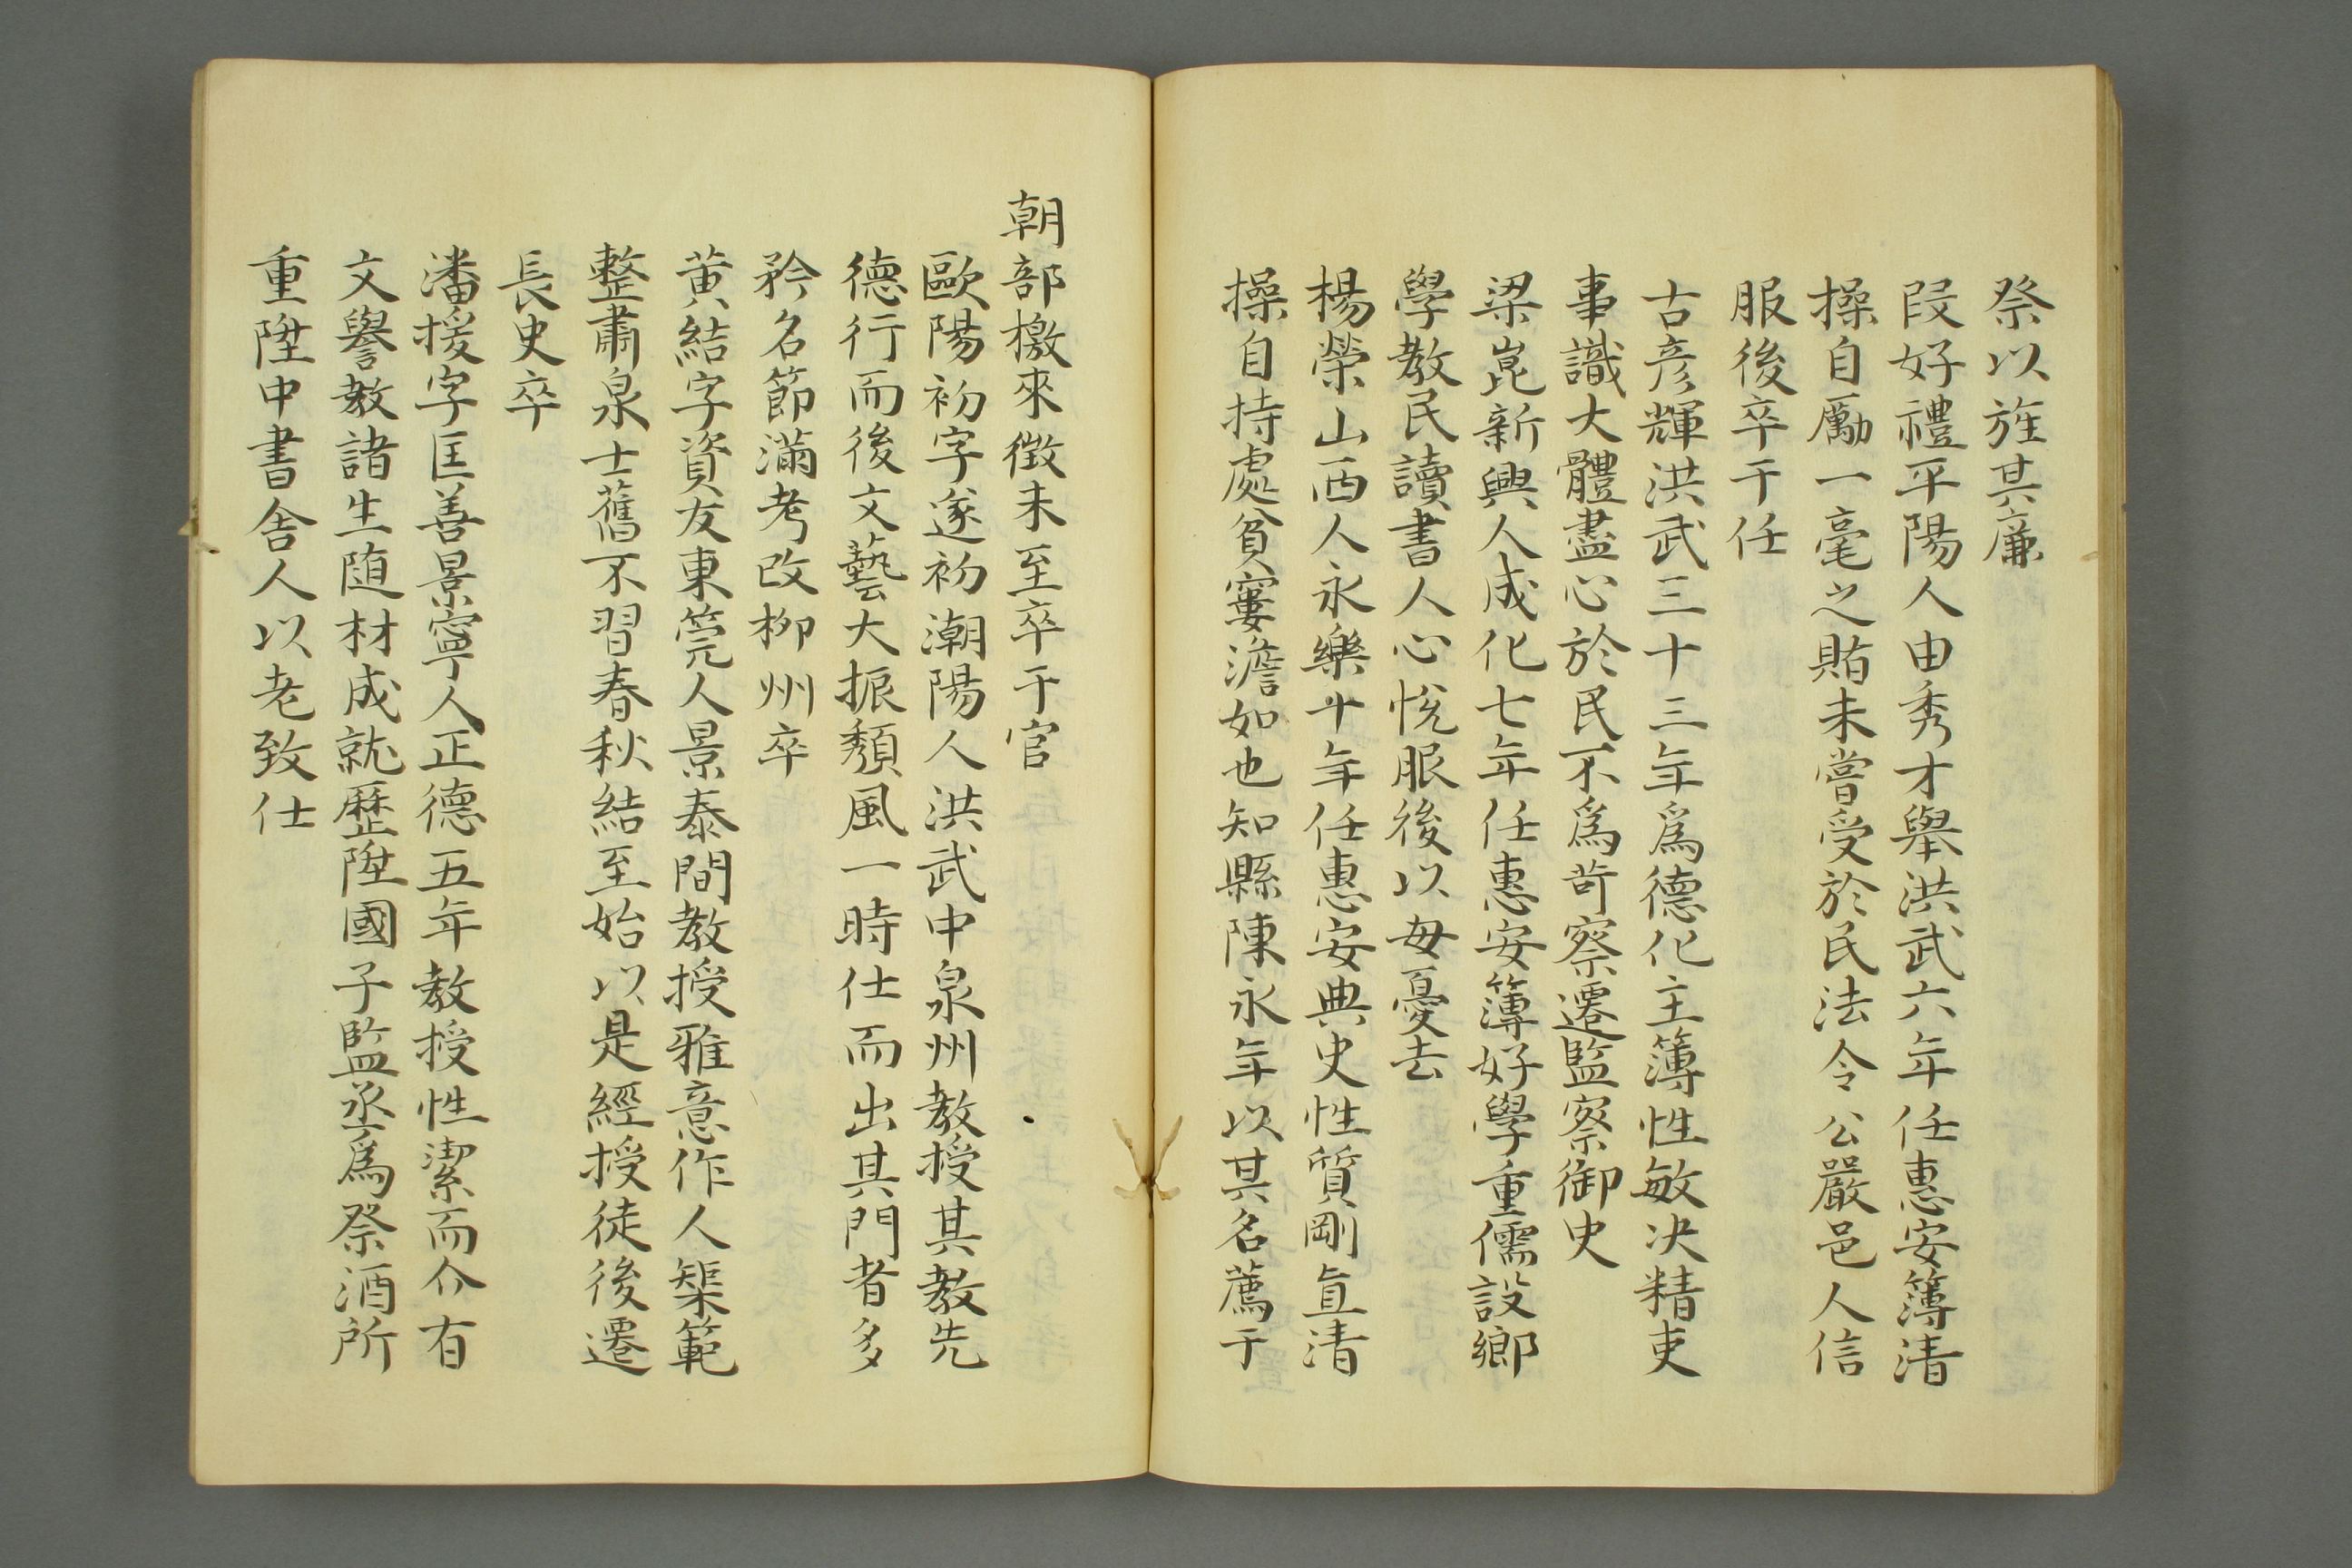 祭以旌其廉
段好禮平陽人由秀才舉洪武六年任惠安簿清
操自勵一毫之賄未嘗受於民法令公嚴邑人信
服後卒于任
古彦輝洪武三十三年爲德化主簿性敏决精吏
事識大體盡心於民不爲苛察遷監察御史
梁崑新興人成化七年任惠安簿好學重儒設鄉
學教民讀書人心悅服後以母憂去
楊榮山西人永樂十年任惠安典史性質剛直清
操自持處貧窶澹如也知縣陳永年以其名薦于
朝部檄來徵未至卒于官
歐陽初字遂初潮陽人洪武中泉州教授其教先
德行而後文藝大振頹風一時仕而出其門者多
矜名節滿考改柳州卒
黃結字資友東筦人景泰間教授雅意作人榘範
整肅泉士舊不習春秋結至始以是經授徒後遷
長史卒
潘援字匡善景寧人正德五年教授性潔而介有
文譽教諸生随材成就歷陞國子監丞爲祭酒所
重陞中書舍人以老致仕